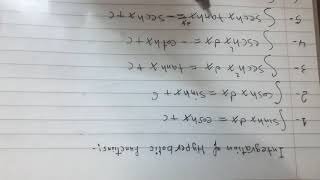 Integration of Hyperbolic functions:-
1- ∫ sinhx dx = coshx + c
2- ∫ coshx dx = sinhx + c
3- ∫ sech²x dx = tanhx + c
4- ∫ csch²x dx = - cothx + c
5- ∫ sechx tanhx dx = - sechx + c